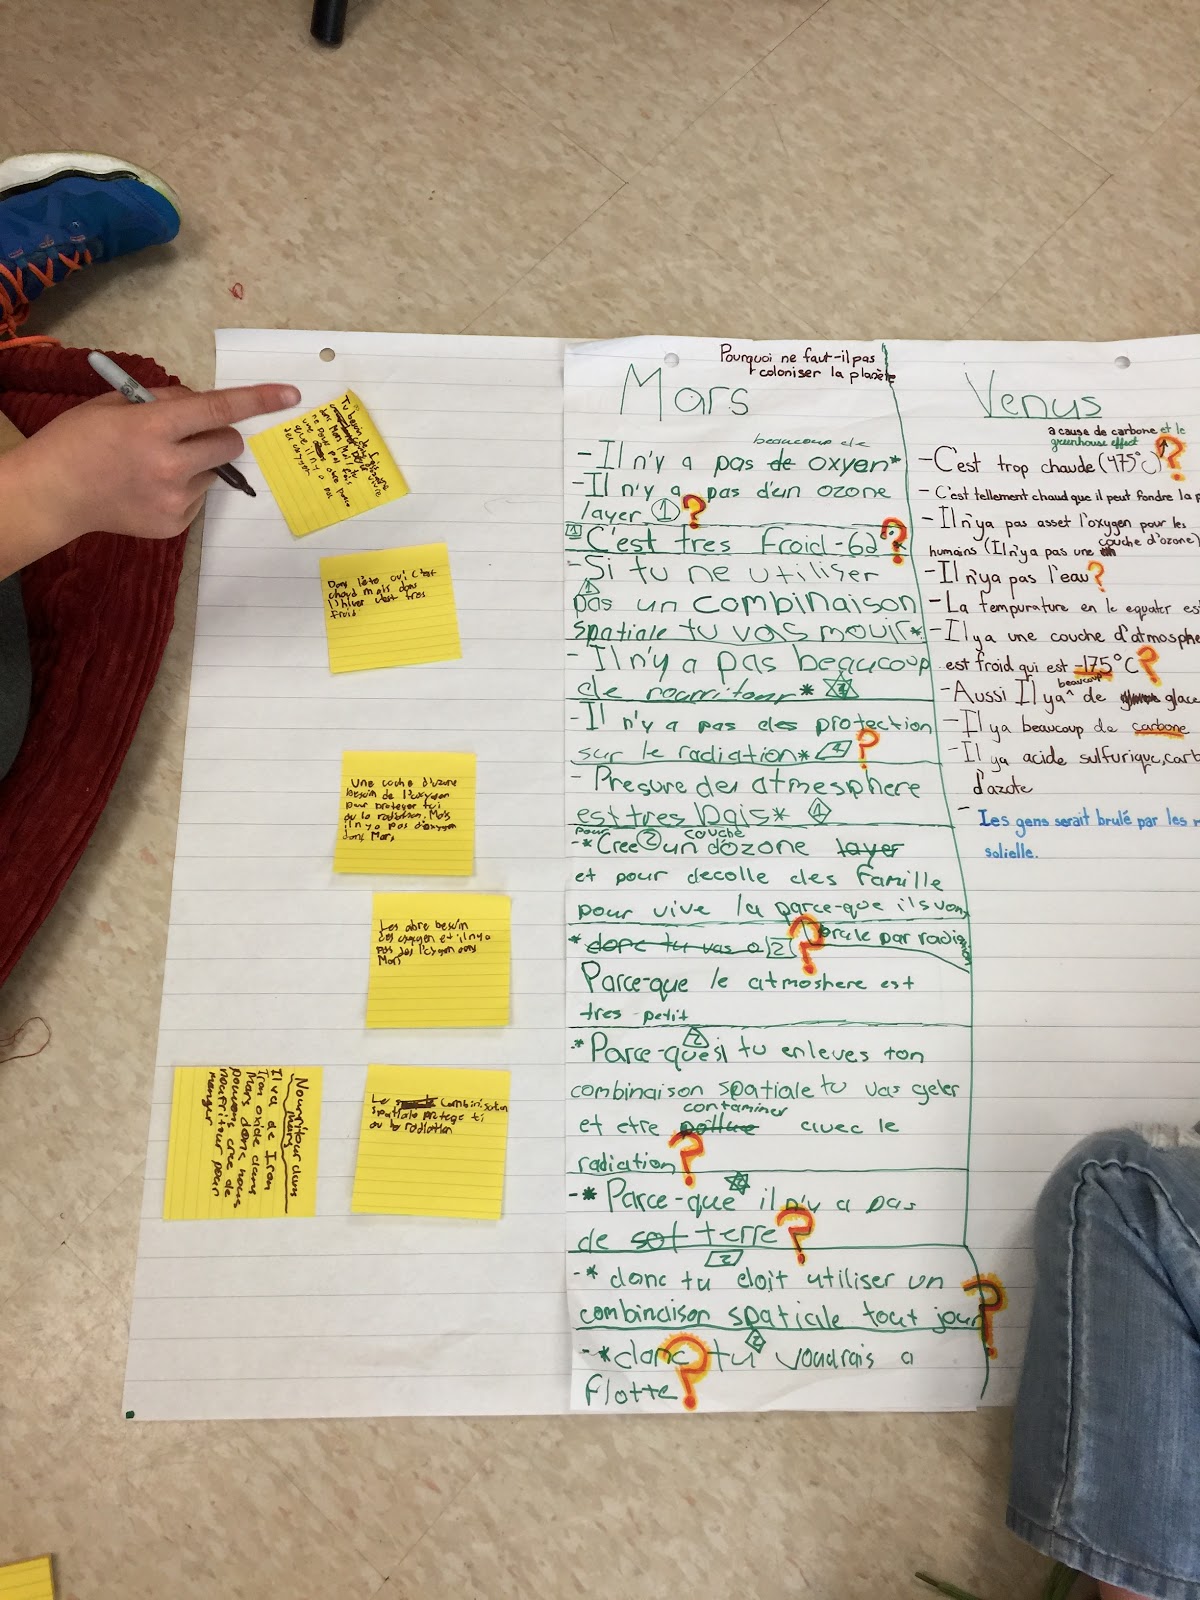 Pourquoi ne faut-il pas
coloniser la planète
Mars
beaucoup de
- Il n'y a pas de oxyen*
- Il n'y a pas d'un ozone
layer 1 ?
1 C'est tres froid -62 ?
- Si tu ne utiliser
1
pas un combinaison
spatiale tu vas mouir*
- Il n'y a pas beaucoup
de nourritour*
- Il n'y a pas des protection
sur le radiation* 1 ?
- Presure des atmesphere
est tres bais* 1
pour couche
-*Cree 2 un d'ozone layer
et pour decolle des famille
pour vive la parce-que ils vont
* donc tu vas a 2 ? brule par radiation
Parce-que le atmoshere est
tres petit
* Parce-que si tu enleves ton
2
combinaison spatiale tu vas geler
contaminer
et etre pollue avec le
radiation ?
-* Parce-que il n'y a pas
de sot terre ?
2
-* donc tu doit utiliser un
combinaison spatiale tout jour ?
-* donc tu voudrais a
flotte ?
Venus
a cause de carbone et le
greenhouse effect
- C'est trop chaude (475°C) ?
- C'est tellement chaud que il peut fondre la
- Il n'ya pas asset l'oxygen pour les
humains (Il n'ya pas une couche d'ozone)
- Il n'ya pas l'eau ?
- La tempurature en le equater es
- Il ya une couche d'atmosphe
est froid qui est -175°C ?
beaucoup
- Aussi Il ya de glace
- Il ya beaucoup de carbone
- Il ya acide sulfurique, carb
d'azote
- Les gens serait brulé par les
solielle.
Tu besoin de
Dans l'éte oui c'est
chaud mais dans
l'hiver c'est tres
froid
Une coche d'ozone
besoin de l'oxygen
pour proteger tui
ou la radiation. Mais
il n y a pas d'oxygen
dans Mars
Les abre besoin
des oxygen et il n y a
pas des l'oxygen dans
Mars
Nourritour dans
mars
Il ya de Iron
Iron oxide dans
Mars donc nous
pouvons cree de
nourritour pour
manger
Le combinison
spatiale protege ti
ou la radiation